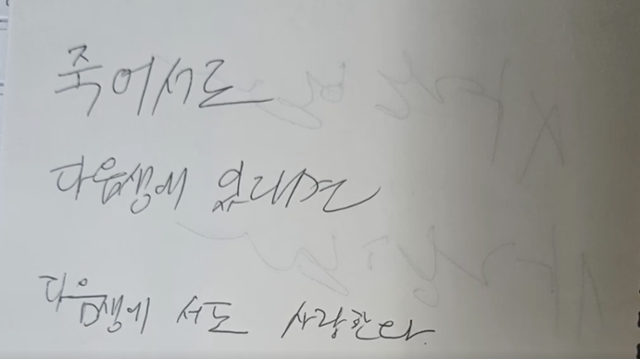 죽어서도
다음생에 있다면
다음생에서도 사랑한다.